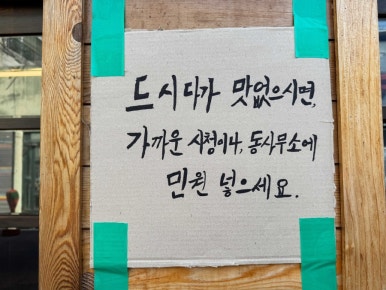 드시다가 맛없으시면,
가까운 시청이나, 동사무소에
민원 넣으세요.